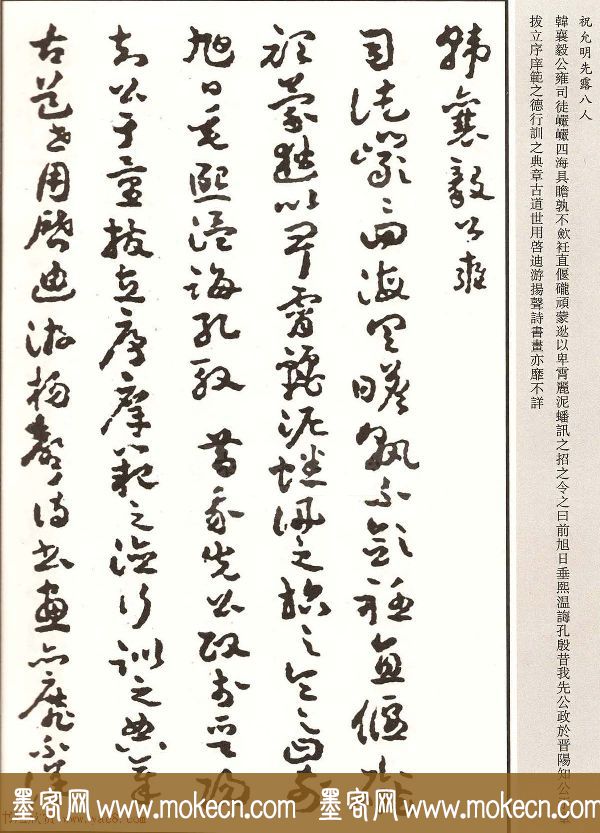 祝允明先露八人
韓襄毅公雍司徒巘巘四海具瞻孰不歛衽直偃巃頑蒙逖以卑霄麗泥蟠訊之招之令之曰前旭日垂熙温誨孔殷昔我先公政於晋陽知公
拔立序庠範之德行訓之典章古道世用啓迪游揚聲詩書畫亦靡不詳
韓襄毅公雍
司徒巘〻四海具瞻孰不歛衽直偃巃
頑蒙逖以卑霄麗泥蟠訊之招之令之曰前
旭日垂熙温誨孔殷昔我先公政於晋陽
知公于童拔立序庠範之德行訓之典章
古道世用啓迪游揚聲詩書畫亦靡不詳
墨客网 www.mokecn.com 墨客网 www.mokecn.com
www.yac8.com